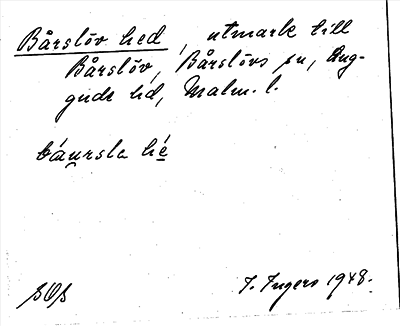 Bårslöv hed, utmark till
Bårslöv, Bårslövs sn, Lug-
gude hd, Malm. l.
báu̯rsla hé
SOB
I. Ingers 1948.